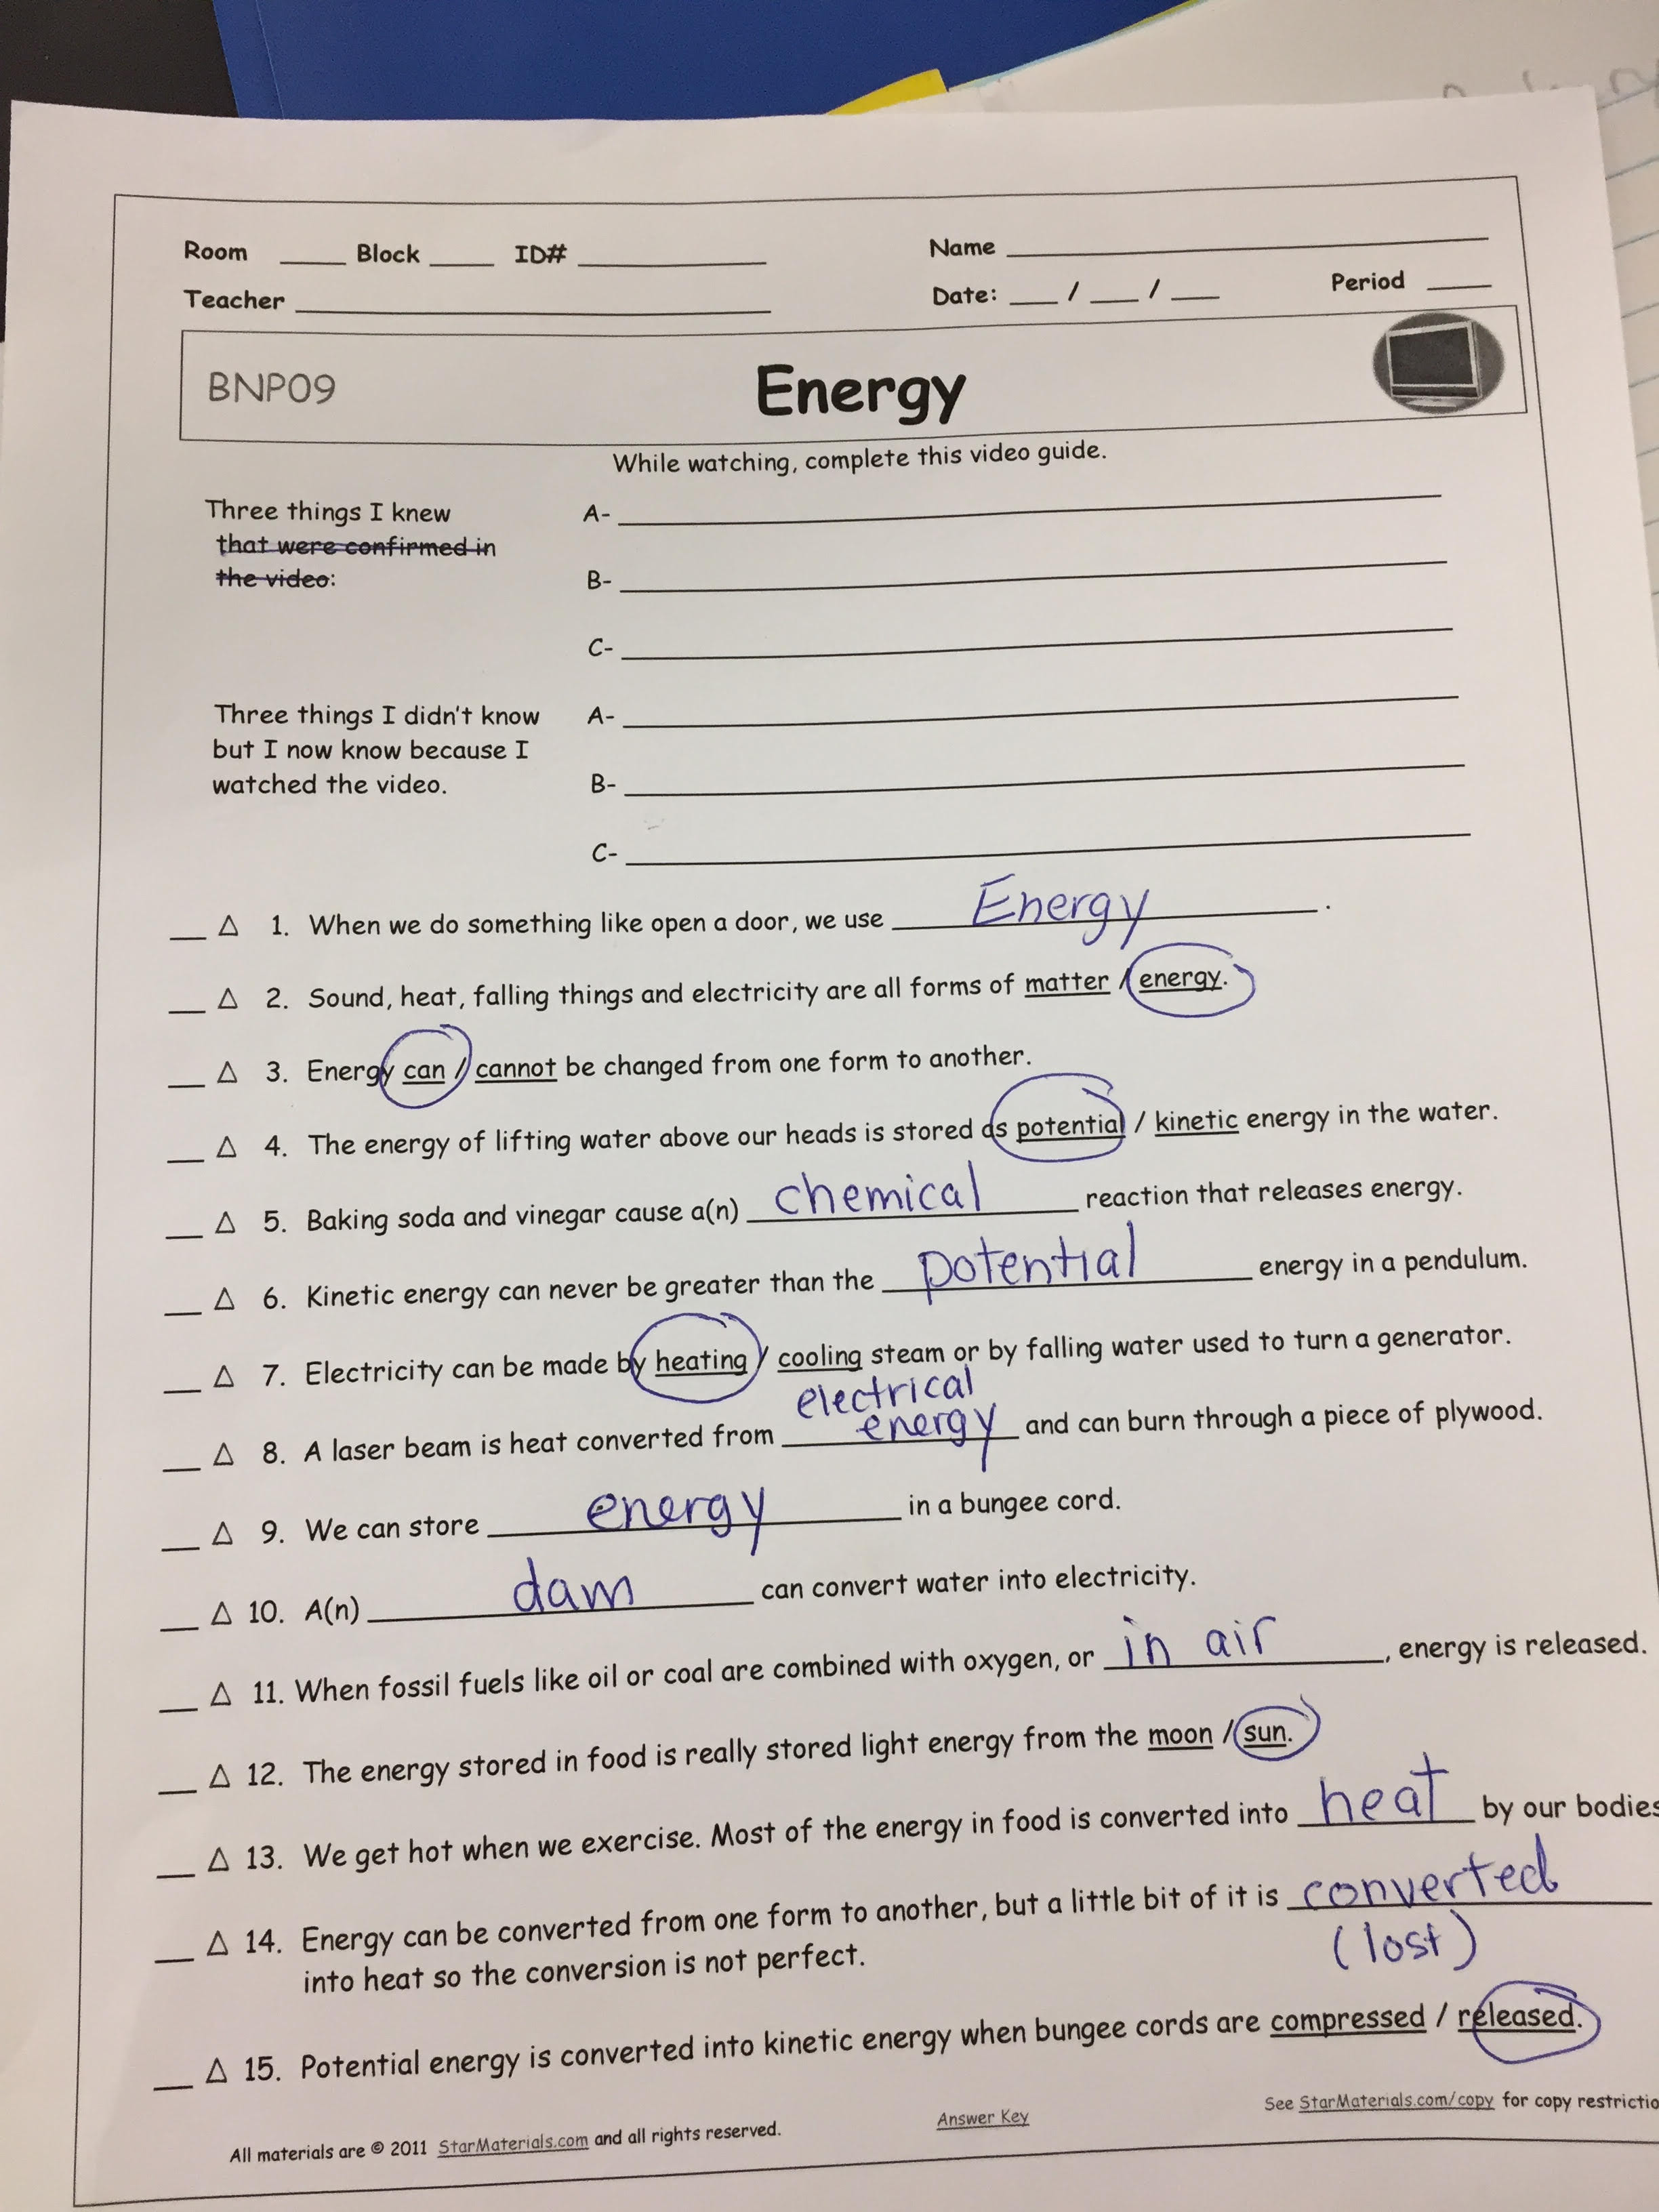 Room ____ Block ____ ID# ________ Name ________
Teacher ________ Date: ___ / ___ / ___ Period ____
BNP09 Energy
While watching, complete this video guide.
Three things I knew
that were confirmed in
the video:
A-
B-
C-
Three things I didn't know
but I now know because I
watched the video.
A-
B-
C-
__ Δ 1. When we do something like open a door, we use Energy.
__ Δ 2. Sound, heat, falling things and electricity are all forms of matter / energy.
__ Δ 3. Energy can / cannot be changed from one form to another.
__ Δ 4. The energy of lifting water above our heads is stored as potential / kinetic energy in the water.
__ Δ 5. Baking soda and vinegar cause a(n) chemical reaction that releases energy.
__ Δ 6. Kinetic energy can never be greater than the potential energy in a pendulum.
__ Δ 7. Electricity can be made by heating / cooling steam or by falling water used to turn a generator.
electrical
__ Δ 8. A laser beam is heat converted from energy and can burn through a piece of plywood.
__ Δ 9. We can store energy in a bungee cord.
__ Δ 10. A(n) dam can convert water into electricity.
__ Δ 11. When fossil fuels like oil or coal are combined with oxygen, or in air, energy is released.
__ Δ 12. The energy stored in food is really stored light energy from the moon / sun.
__ Δ 13. We get hot when we exercise. Most of the energy in food is converted into heat by our bodies
__ Δ 14. Energy can be converted from one form to another, but a little bit of it is converted
(lost)
into heat so the conversion is not perfect.
__ Δ 15. Potential energy is converted into kinetic energy when bungee cords are compressed / released.
All materials are © 2011 StarMaterials.com and all rights reserved. Answer Key See StarMaterials.com/copy for copy restrictio